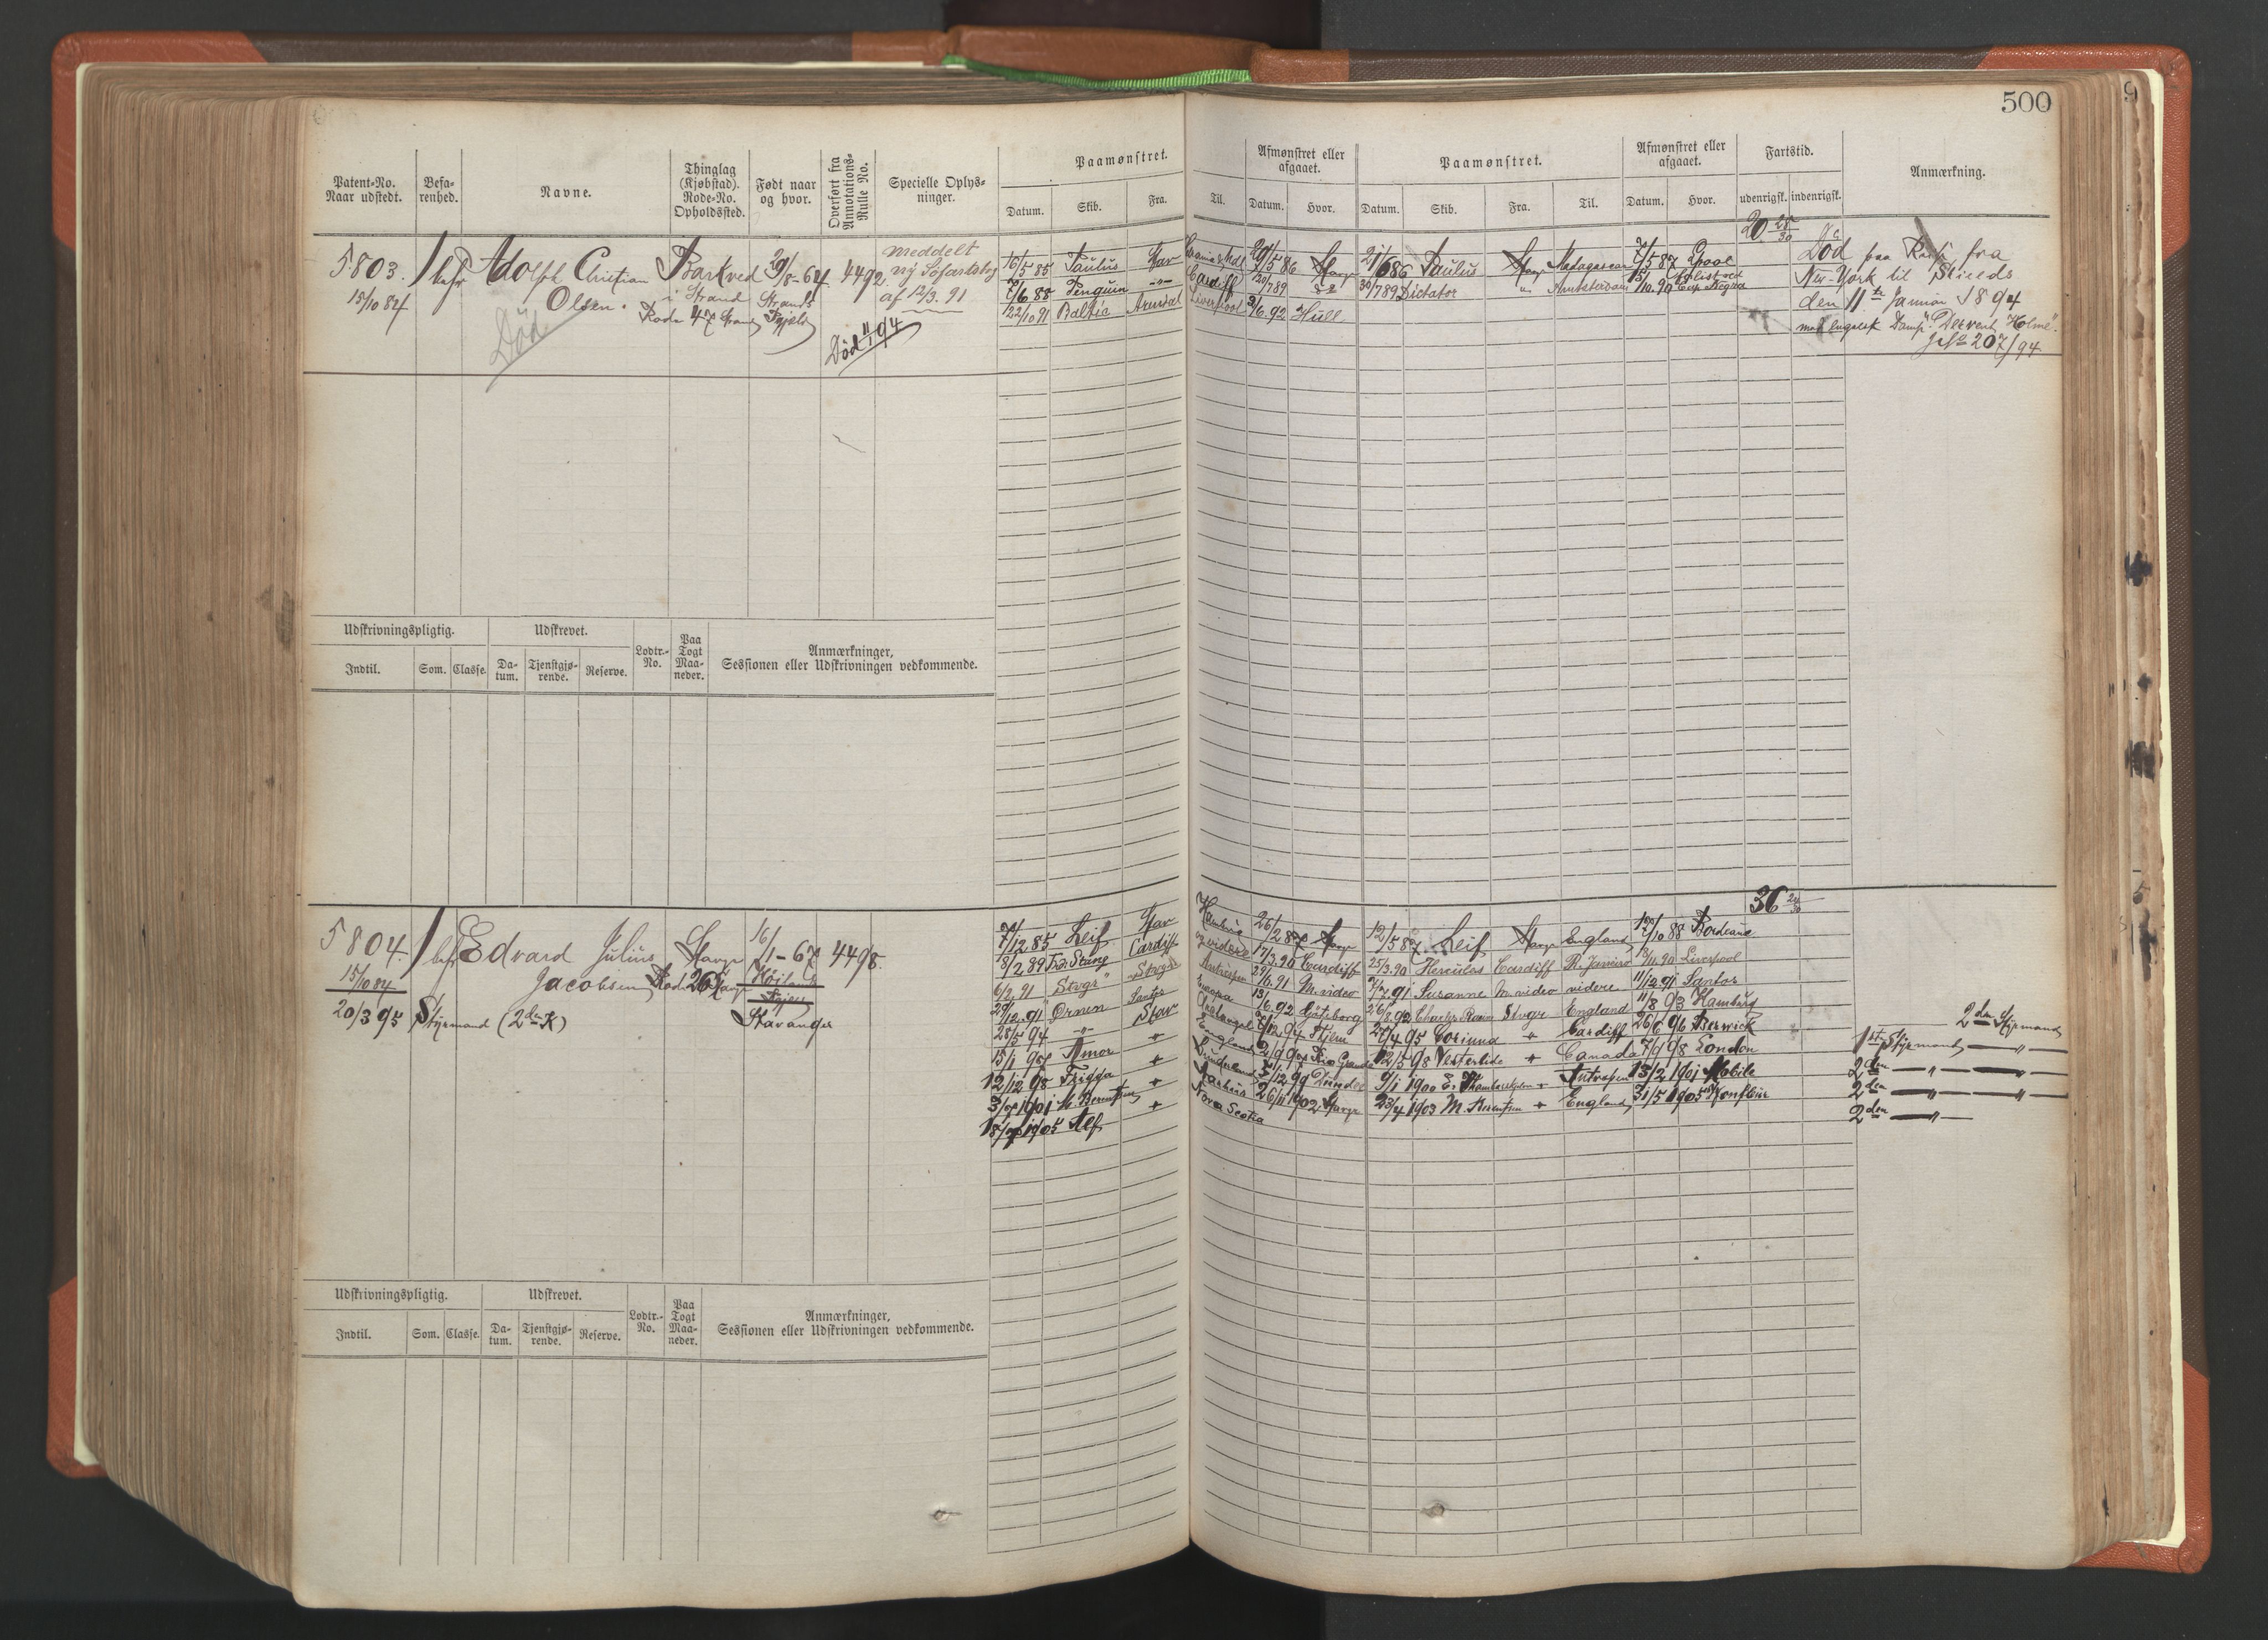 500
9
Patent-No. Naar udstedt.
Befa-renhed.
Navne.
Thinglag (Kjøbstad). Rode-No. Opholdssted.
Født naar og hvor.
Overført fra Annotations-Rulle No.
Specielle Oplys-ninger.
Paamønstret.
Datum. Skib. Fra. Til.
Afmønstret eller afgaaet.
Datum. Hvor.
Paamønstret.
Datum. Skib. Fra. Til.
Afmønstret eller afgaaet.
Datum. Hvor.
Fartstid.
udenrigsk. indenrigsk.
Anmærkning.
20 28/30
5803. 1 bef Adolph Christian Barkved 29/8-64 4492 meddelt
15/10 84 Olsen. i Strand Strands ny Søfartsbog
Rode 47 af 12/3. 91
Død
Død 11/1 94
16/5 85 Paulus Stav 29/5 86 Stavgr 21/6 86 Paulus Stavgr Madagascar 7/5 87 Lpool
7/6 88 Penguin -"- Cardiff 20/7 89 30/7 89 Dictator " Amsterdam 15/10.90
22/10 91 Baltic Arendal Liverpool 3/6.92 Hull
Død paa Reise fra
New-York til Shields
den 11te Januar 1894
med engelsk Damp. "Derwent Holme".
Jfr 207/94
Udskrivningspligtig. Udskrevet. Lodtr.-No. Paa Togt Maa-neder. Anmærkninger, Sessionen eller Udskrivningen vedkommende.
Indtil. Som. Classe. Da-tum. Tjenstgjø-rende. Reserve.
36 24/30
5804. 1 bef Edvard Julius Stavgr 16/1-67 4498.
15/10 84 Jacobsen Rode 26 Stavgr
20/3 95 Styrmand (2den K) Stavanger
7/12 85 Leif Stav Hamburg 26/2 87 Stavgr 12/5 87 Leif Stavgr England 12/10 88 Bordeaux
8/2 89 Cardiff 17/3.90 Cardiff 25/3.90 Hercules Cardiff R. Janeiro 13/11.90 Liverpool
6/2.91 Stvgr Antwerpen 29/6.91 M.video Susanne M.video videre 11/12.91 Santos
29/12.91 Ørnen Santos Europa 13/6.92 Göteborg 26/8.92 Stvgr England 11/8 93 Hamburg
28/5 94 -"- Stav Archangel 27/4 95 Corinna + Cardiff 26/6 96 Berwick 2den Styrmand
15/1 97 Amor + England Rio Grande 12/5 98 Vesterlide + Canada 7/9 98 London 1ste Styrmand -"-
12/12 98 Frigga + Sunderland 5/12 99 Dundee 9/1 1900 + Antwerpen 13/2 1901 Mobile 2den -"-
3/7 1901 M. Berentsen + 26/11 1902 Stavgr 23/4 1903 M. Berentsen + England 31/5 1905 2den -"-
18/7 1905 Alf + Nova Scotia 2den -"-
Udskrivningspligtig. Udskrevet. Lodtr.-No. Paa Togt Maa-neder. Anmærkninger, Sessionen eller Udskrivningen vedkommende.
Indtil. Som. Classe. Da-tum. Tjenstgjø-rende. Reserve.